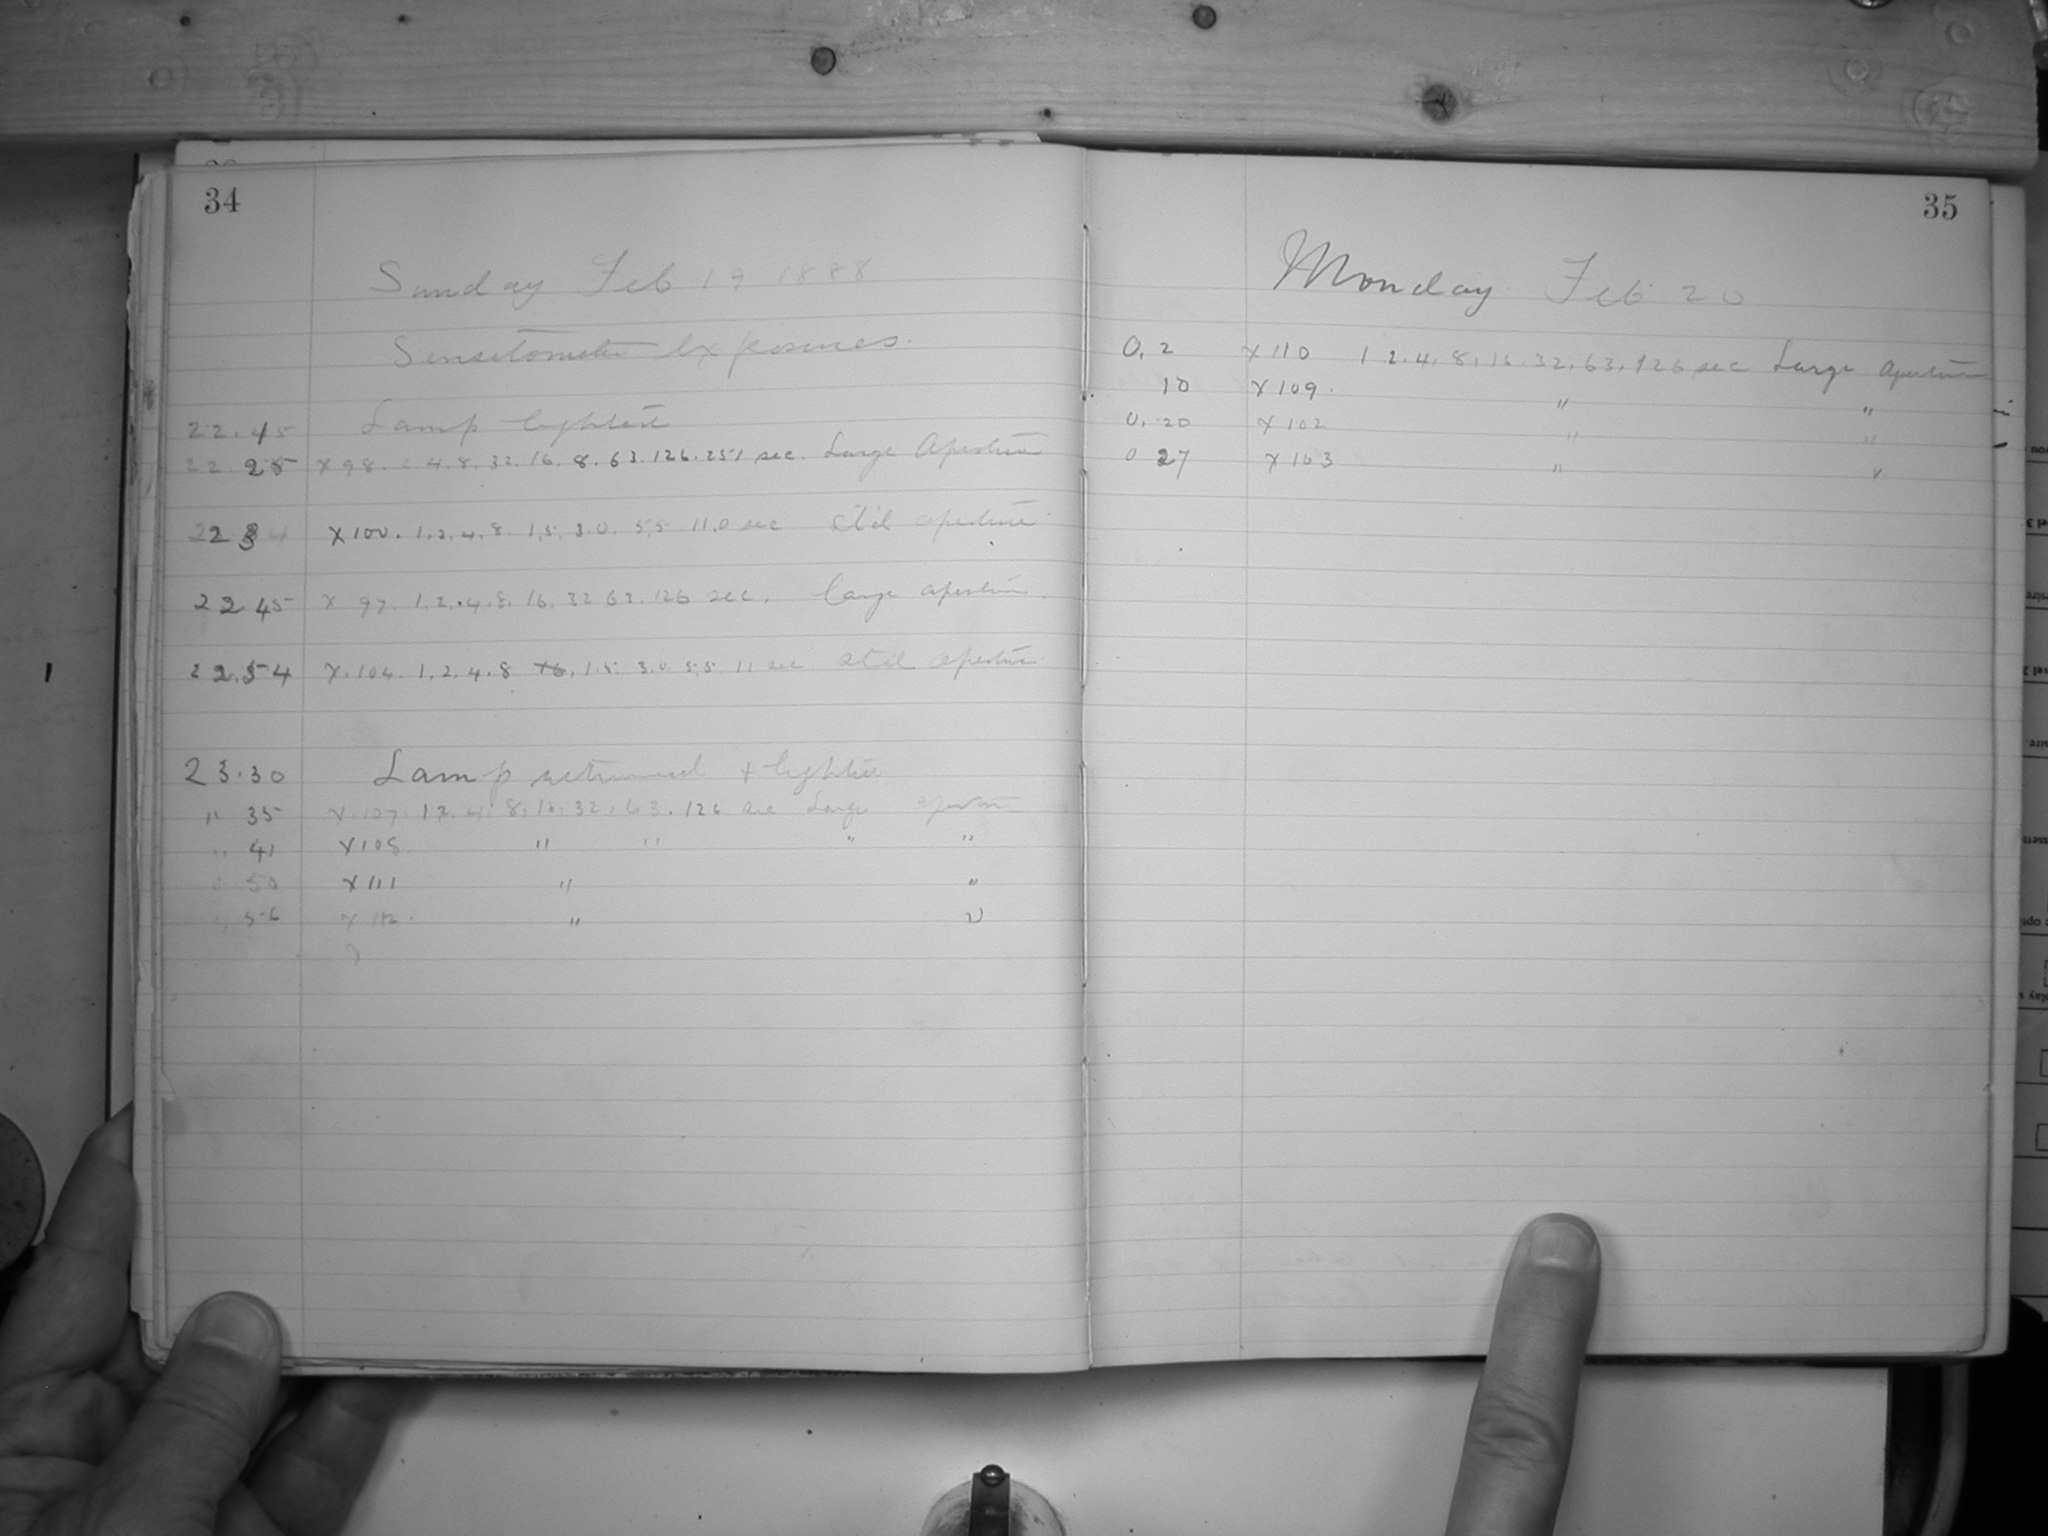 34
Sunday Feb 19 1888
Sensitometer Exposures.
22.45 Lamp lighted
22.25 X98. 2 4. 8. 32. 16. 8. 63. 126. 251 sec. Large Aperture
22 34 X100. 1. 2. 4. 8. 1,5. 3.0. 5,5 11,0 sec std aperture
22 45 X 97. 1. 2. 4. 8. 16. 32 63. 126 sec. large aperture.
22.54 X. 104. 1. 2. 4. 8 16. 1.5. 3.0. 5,5. 11 sec std aperture.
23.30 Lamp returned + lighted
" 35 X. 107. 1 2. 4. 8. 16. 32. 63. 126 sec Large Aperture
" 41 X108 " " " "
" 50 X111 " "
" 56 X 112. " "
35
Monday Feb 20
0, 2 X110 1 2. 4. 8. 16. 32. 63. 126 sec Large Aperture
10 X109. " "
0, 20 X102 " "
0 27 X103 " "